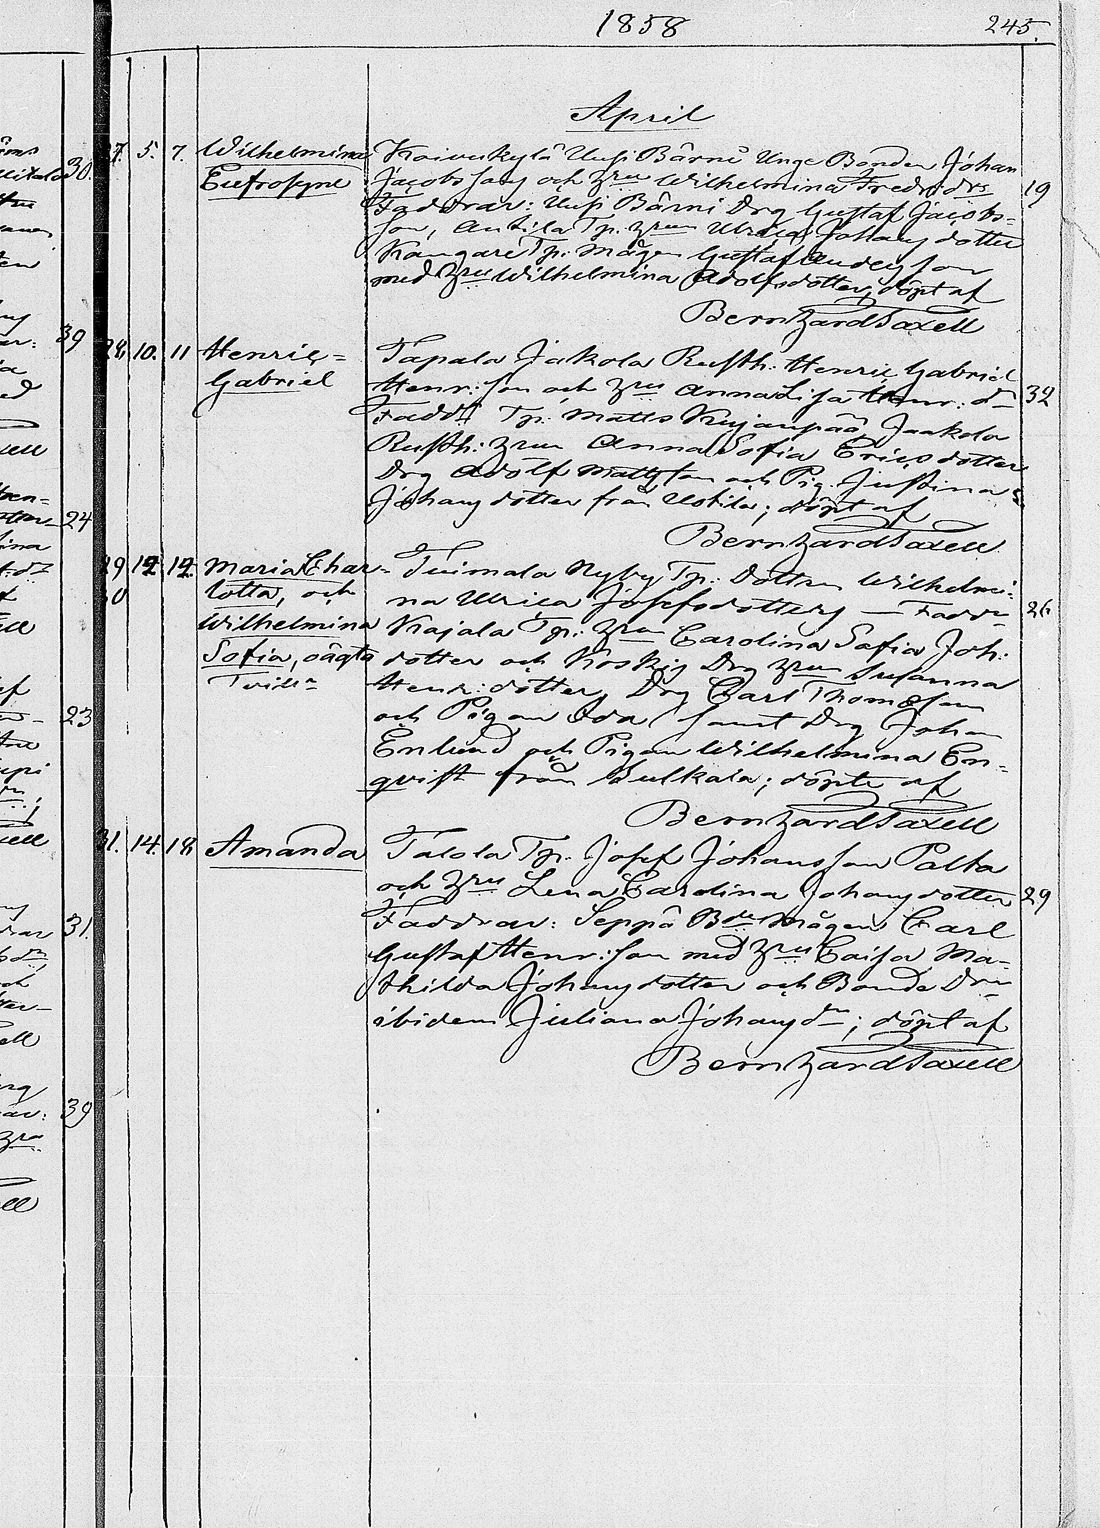 1858 245.
April
27. 5. 7. Wilhelmina Koivukylä Uusi Bärni Unge Bonden Johan
Eufrosyne Jacobsson och hru Wilhelmina Fredr: drs 19
Faddrar: Uusi Bärni Drg Gustaf Jacobs-
son, Antila Tp. hrun Ulrica Johansdotter
Kangare Tp. mågen Gustaf Andersson
med hru Wilhelmina Adolfsdotter, döpt af
Bernhard Taxell
28. 10. 11 Henric= Tapala Jakola Rusth: Henric Gabriel
Gabriel Henr: son och hru Anna Lisa Henr: dr 32
Fadd: Tp. Matts Kujanpää Jaakola
Rusth: hrun Anna Sofia Ericsdotter
Drg Adolf Mattsson och Pig. Justina
Johansdotter från Uotila; döpt af
Bernhard Taxell
29 12 12. Maria Char= Tuimala Nyby Tp: Dottren Wilhelmi-
30 lotta, och na Ulrica Josefsdotters — Faddr 26
Wilhelmina Kajala Tp. hrun Carolina Sofia Joh:
Sofia, oägta dotter och Koskis Drg hrun Susanna
Tvillr Henr: dotter, Drg Carl Thomasson
och Pigan Ida samt Drg Johan
Enlund och Pigan Wilhelmina En-
qvist från Sulkala; döpte af
Bernhard Taxell
31. 14. 18 Amanda Talola Tp. Josef Johansson Palta
och hru Lena Carolina Johansdotter 29
Faddrar: Seppä Bde Mågen Carl
Gustaf Henr: son med hru Caisa Ma-
thilda Johansdotter och Bonde Drn
ibidem Juliana Johansdr; döpt af
Bernhard Taxell